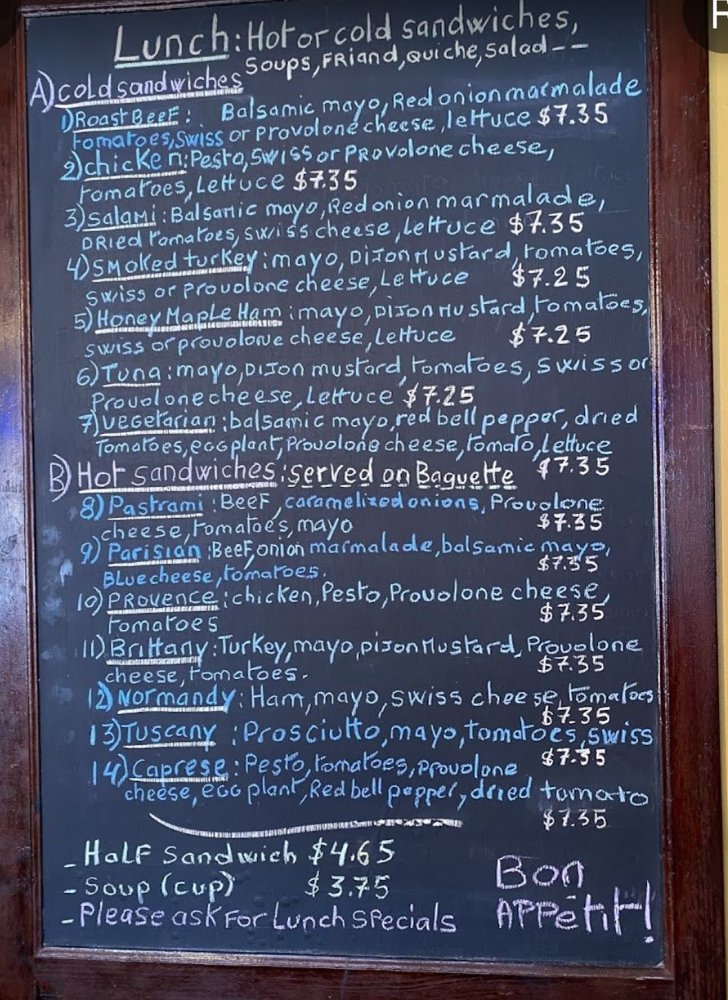 Lunch: Hot or cold sandwiches,
Soups, FRiand, Quiche, Salad--
A) cold sandwiches
1) Roast Beef: Balsamic mayo, Red onion marmalade
tomatoes, Swiss or Provolone cheese, lettuce $7.35
2) chicken: Pesto, Swiss or Provolone cheese,
tomatoes, Lettuce $7.35
3) Salami: Balsamic mayo, Red onion marmalade,
DRied tomatoes, swiss cheese, Lettuce $7.35
4) Smoked turkey: mayo, Dijon Mustard, tomatoes,
Swiss or provolone cheese, Lettuce $7.25
5) Honey Maple Ham: mayo, Dijon Mustard, tomatoes,
swiss or provolone cheese, Lettuce $7.25
6) Tuna: mayo, Dijon mustard, tomatoes, Swiss or
Provolone cheese, Lettuce $7.25
7) vegetarian: balsamic mayo, red bell pepper, dried
Tomatoes, eggplant, Provolone cheese, tomato, Lettuce
$7.35
B) Hot sandwiches: served on Baguette
8) Pastrami: Beef, caramelized onions, Provolone
cheese, tomatoes, mayo $7.35
9) Parisian: Beef, onion marmalade, balsamic mayo,
Blue cheese, tomatoes. $7.35
10) Provence: chicken, Pesto, Provolone cheese,
tomatoes $7.35
11) Brittany: Turkey, mayo, Dijon Mustard, Provolone
cheese, tomatoes. $7.35
12) Normandy: Ham, mayo, swiss cheese, tomatoes
$7.35
13) Tuscany: Prosciutto, mayo, tomatoes, swiss
$7.35
14) Caprese: Pesto, tomatoes, provolone
cheese, egg plant, Red bell pepper, dried tomato
$7.35
- Half Sandwich $4.65
- Soup (cup) $3.75
- Please ask For Lunch Specials
Bon
Appétit!